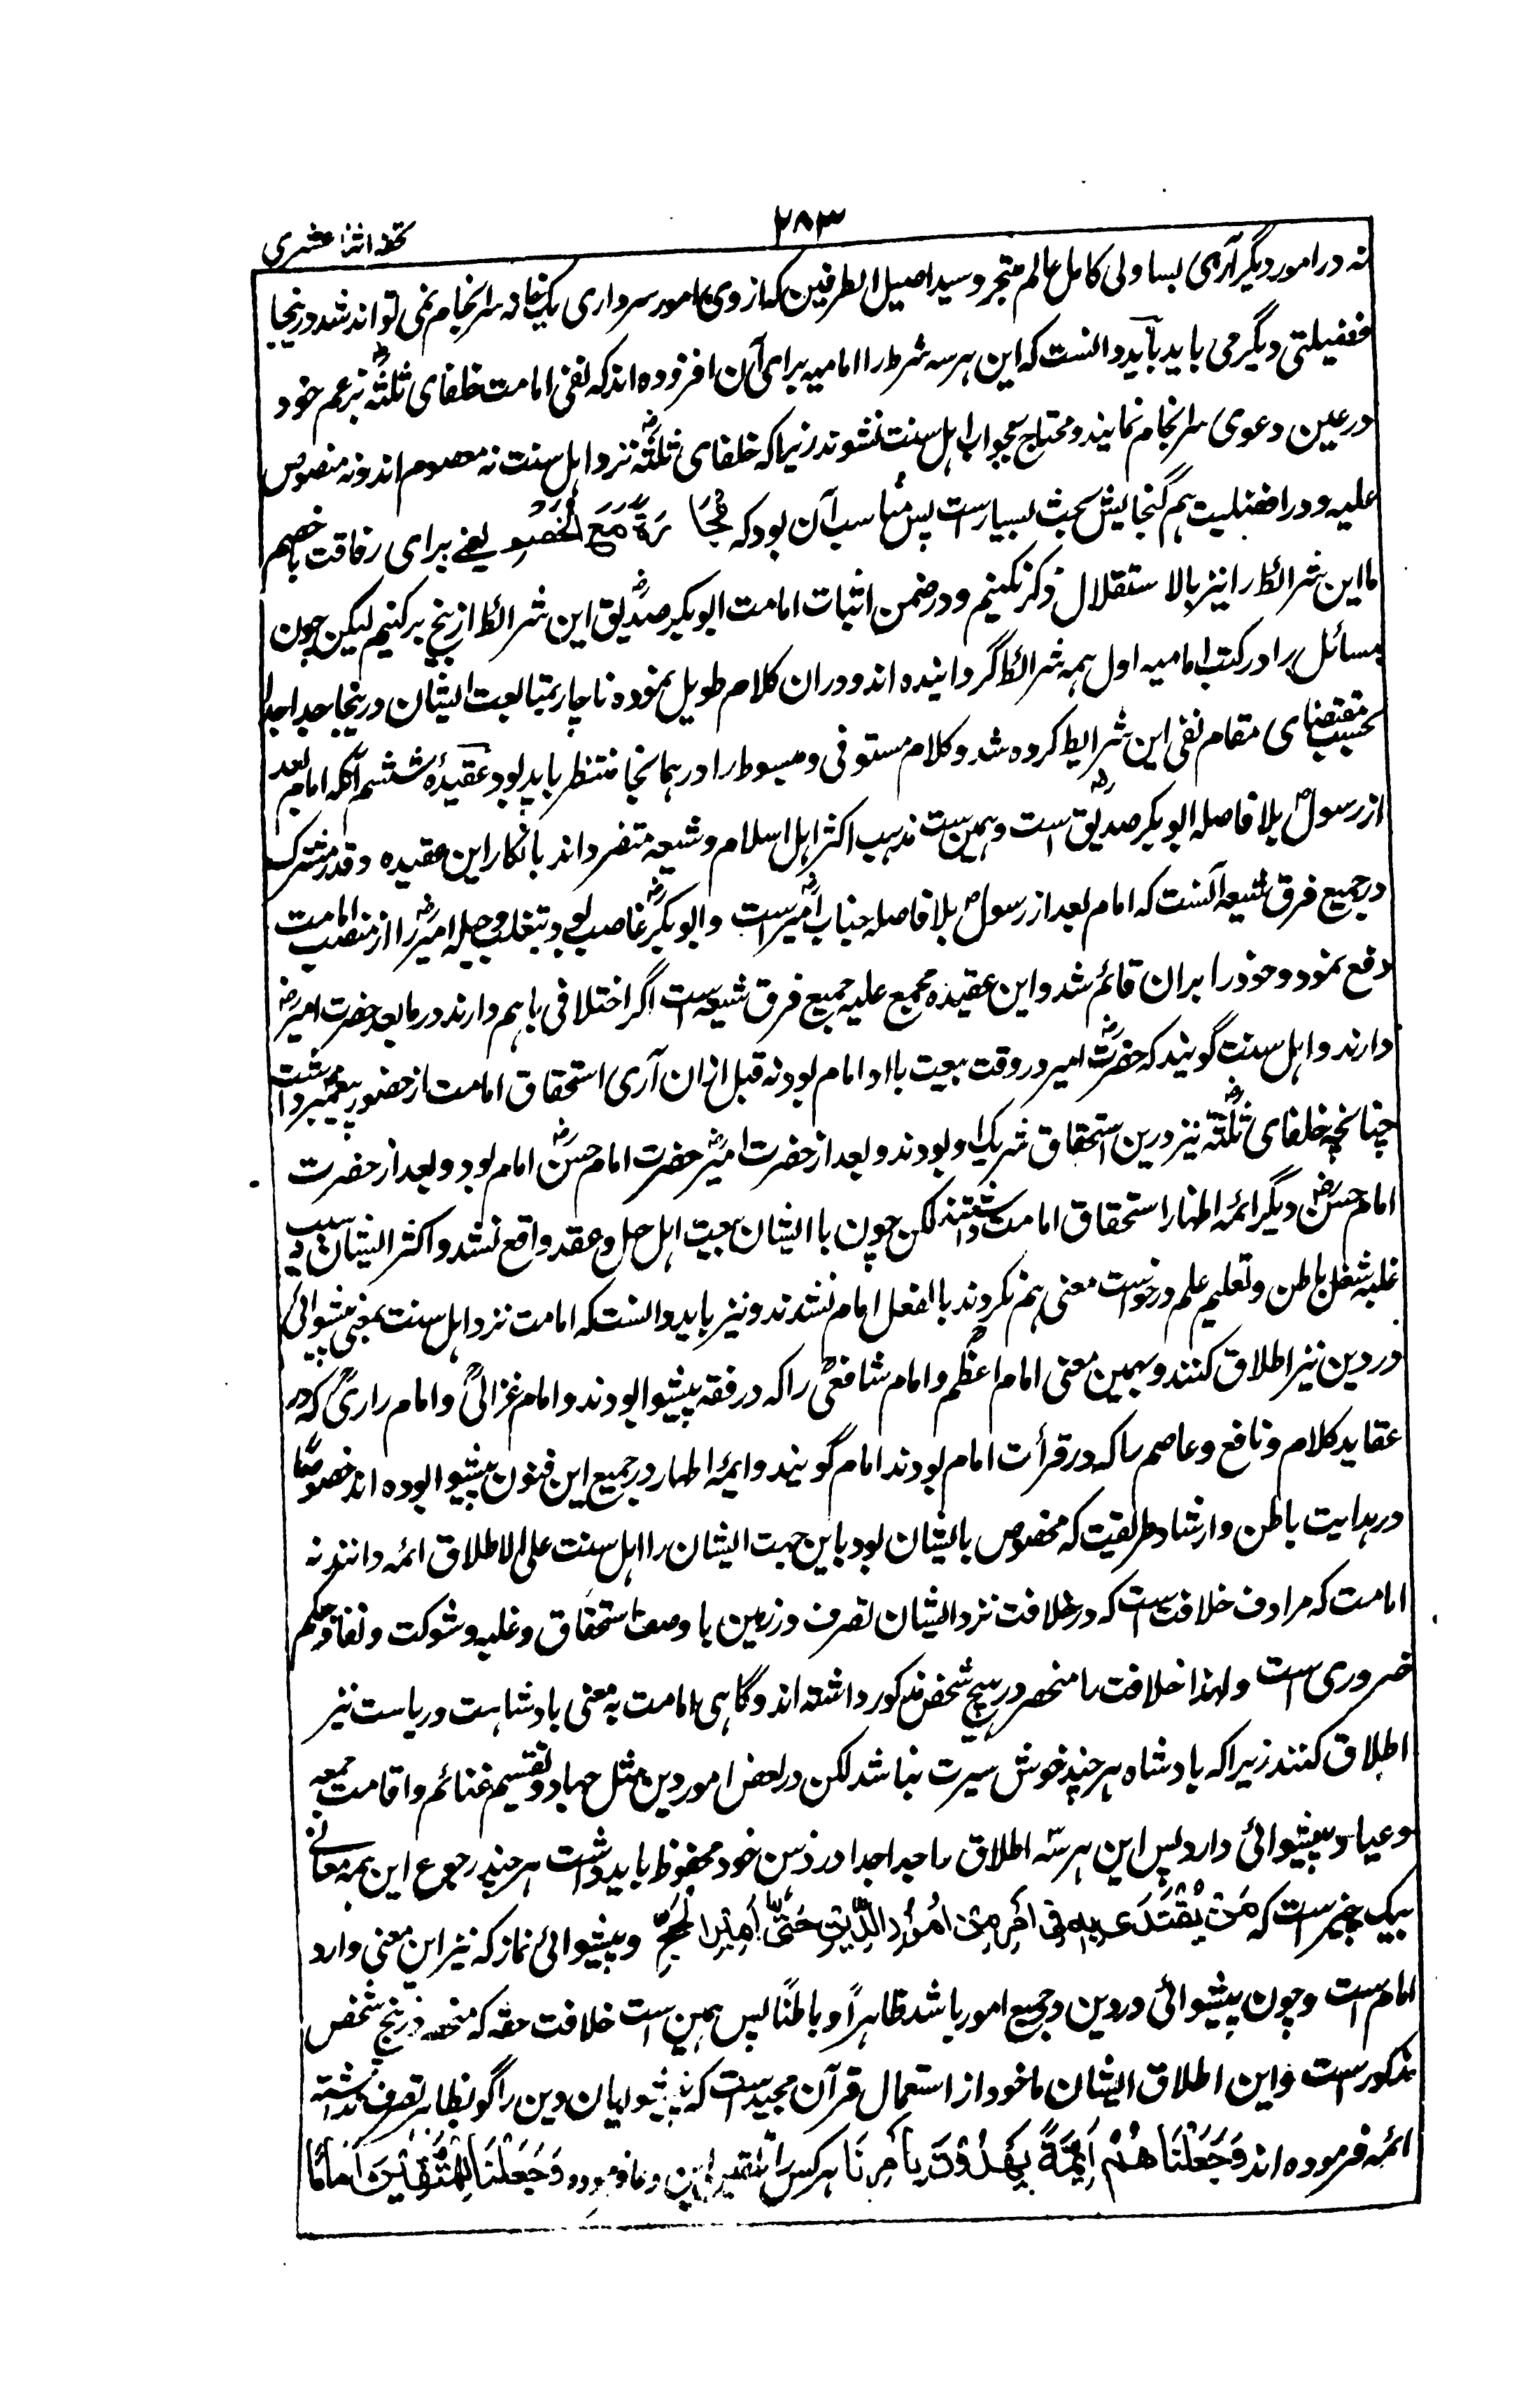 ۲۸۳
تحفه اثنا عشری
نه در امور دیگر آری بسا ولی کامل عالم متبحر و سید اصیل الطرفین که از وی امور سرداری یک خانه سر انجام نمی تواند شد درینجا
فضیلتی دیگر می باید باید دانست که این هر سه شرط را امامیه برای آن افزوده اند که نفی امامت خلفای ثلثه رض بزعم خود
در عین دعوی سر انجام نمایند و محتاج بجواب اهل سنت نشوند زیرا که خلفای ثلثه رض نزد اهل سنت نه معصوم اند و نه منصوص
علیه و در افضلیت هم گنجایش بحث بسیار است پس مناسب آن بود که مُجَارَةً مَعَ الْخَصْمِ یعنے برای رفاقت با خصم
ما این شرائط را نیز بالاستقلال ذکر نکنیم و در ضمن اثبات امامت ابو بکر صدیق رض این شرائط از بیخ برکنیم لیکن چون
مسائل را در کتب امامیه اول همه شرائط گردانیده اند و دران کلام طویل نموده ناچار بمتابعت ایشان درینجا جدا جدا
بحسب مقتضای مقام نفی این شرایط کرده شد و کلام مستوفی و مبسوط را در همانجا منتظر باید بود عقیدهٔ ششم آنکه امام بعد
از رسول ص بلا فاصله ابو بکر صدیق رض است و همین ست مذهب اکثر اهل اسلام و شیعه متفرد اند بانکار این عقیده و قدر مشترک
در جمیع فرق شیعه آنست که امام بعد از رسول ص بلا فاصله جناب امیر رض است و ابو بکر رض غاصب بود بتغلب و حیله امیر رض را از منصب امامت
دفع نمود و خود را بران قائم شد و این عقیده مجمع علیه جمیع فرق شیعه است اگر اختلافی باهم دارند در ما بعد حضرت امیر رض
دارند و اهل سنت گویند که حضرت امیر رض در وقت بیعت با او امام بود نه قبل ازان آری استحقاق امامت از حضور پیغمبر داشت
چنانچه خلفای ثلثه رض نیز درین استحقاق شریک او بودند و بعد از حضرت امیر رض حضرت امام حسن رض امام بود و بعد از حضرت
امام حسن رض دیگر ائمه اطهار استحقاق امامت داشتند لکن چون با ایشان بیعت اهل حل و عقد واقع نشد و اکثر ایشان بسبب
غلبه شغل باطن و تعلیم علم درخواست معنی هم نکردند بالفعل امام نشدند و نیز باید دانست که امامت نزد اهل سنت بمعنی پیشوائی
در دین نیز اطلاق کنند و بهمین معنی امام اعظم رح و امام شافعی رح را که در فقه پیشوا بودند و امام غزالی رح و امام رازی رح که در
عقاید کلام و نافع و عاصم را که در قرأت امام بودند امام گویند و ایمه اطهار در جمیع این فنون پیشوا بوده اند خصوصًا
در هدایت باطن و ارشاد طریقت که مخصوص بایشان بود باین جهت ایشان را اهل سنت علی الاطلاق ائمه دانند نه
امامت که مرادف خلافت ست که در خلافت نزد ایشان تصرف در زمین با وصف استحقاق و غلبه و شوکت و نفاذ حکم
ضروری است و لهذا خلافت را منحصر در پنج شخص مذکور داشته اند و گاهی امامت به معنی بادشاهت و ریاست نیز
اطلاق کنند زیرا که بادشاه هر چند خوش سیرت نباشد لکن در بعض امور دین مثل جهاد و تقسیم غنائم و اقامت جمعه
و عیاد پیشوائی دارد پس این هر سه اطلاق را جدا جدا در ذهن خود محفوظ باید داشت هر چند رجوع این همه معانی
بیک چیز است که مَنْ یُقْتَدَی بِهِ فِی اَمْرٍ مِنْ اُمُوْرِ الدِّیْنِ حَتّٰی اَمِیْرِ الْحَجِّ و پیشوائی نماز که نیز این معنی وارد
امام است و چون پیشوائی در دین در جمیع امور باشد ظاهراً و باطناً پس همین است خلافت حقه که منحصر در پنج شخص
مذکور است و این اطلاق ایشان ماخوذ از استعمال قرآن مجید است که پیشوایان دین را گو بظاهر تصرف نداشته
ائمه فرموده اند وَجَعَلْنَاهُمْ اَئِمَّةً یَهْدُوْنَ بِاَمْرِنَا هر کس را وَجَعَلْنَا لِلْمُتَّقِیْنَ اِمَامًا